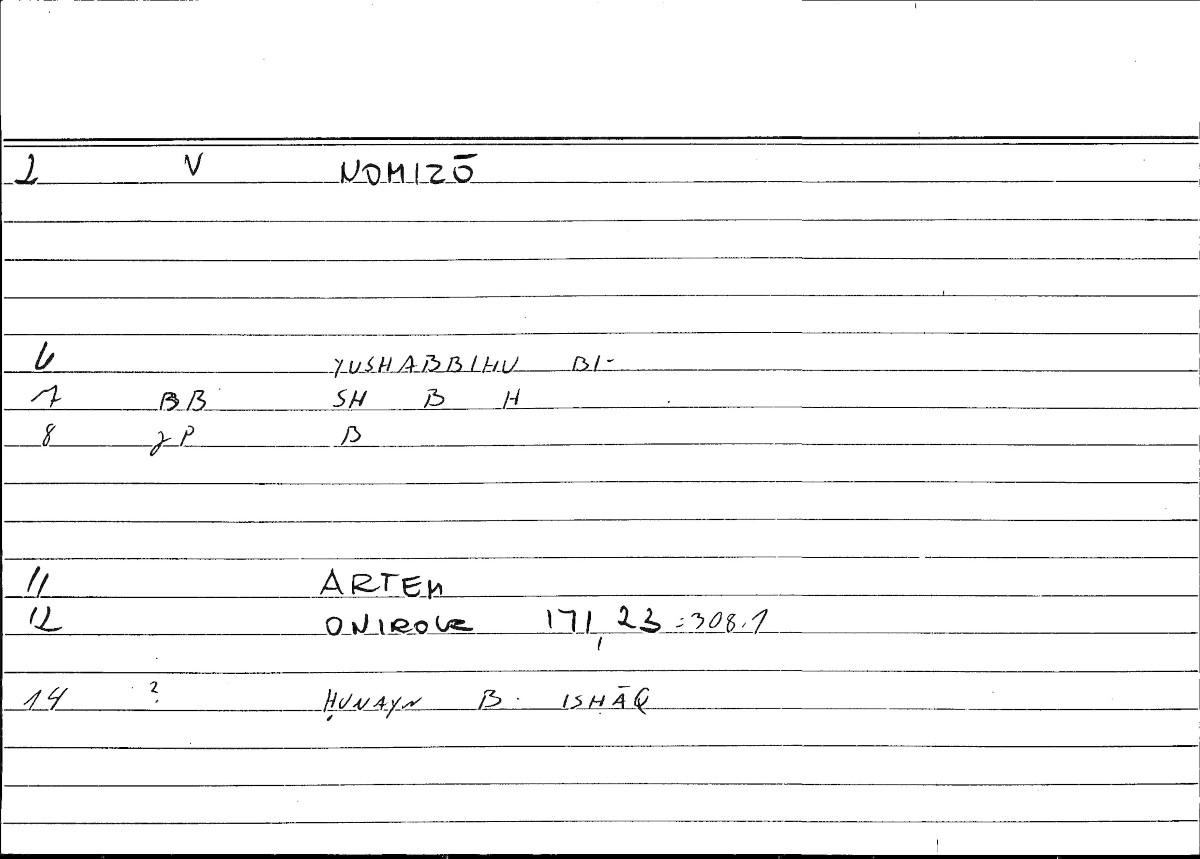 2 V NOMIZŌ
6 YUSHABBIHU BI-
7 BB SH B H
8 2P B
11 ARTEM
12 ONIROCR 171,23 = 308.1
14 ? ḤUNAYN B. ISḤĀQ